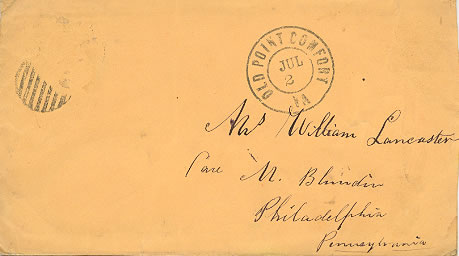 OLD POINT COMFORT
JUL
2
VA
Mrs William Lancaster
Care M. Blundin
Philadelphia
Pennsylvania